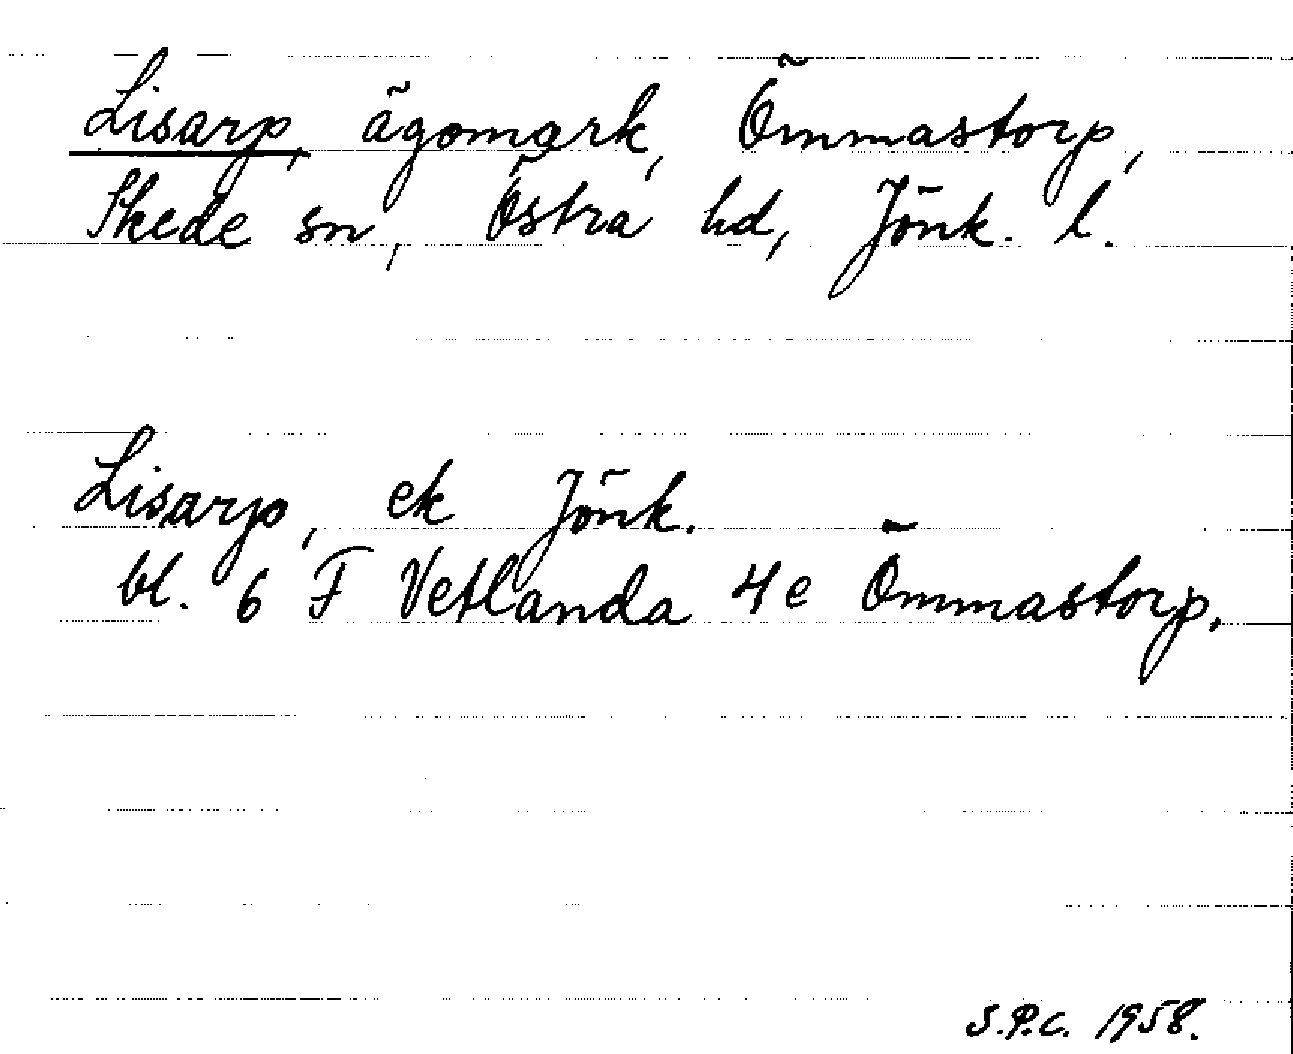 Lisarp, ägomark, Ömmastorp,
Skede sn, Östra hd, Jönk. l.
Lisarp, ek Jönk.
bl. 6 F Vetlanda 4e Ömmastorp.
S.P.C. 1958.